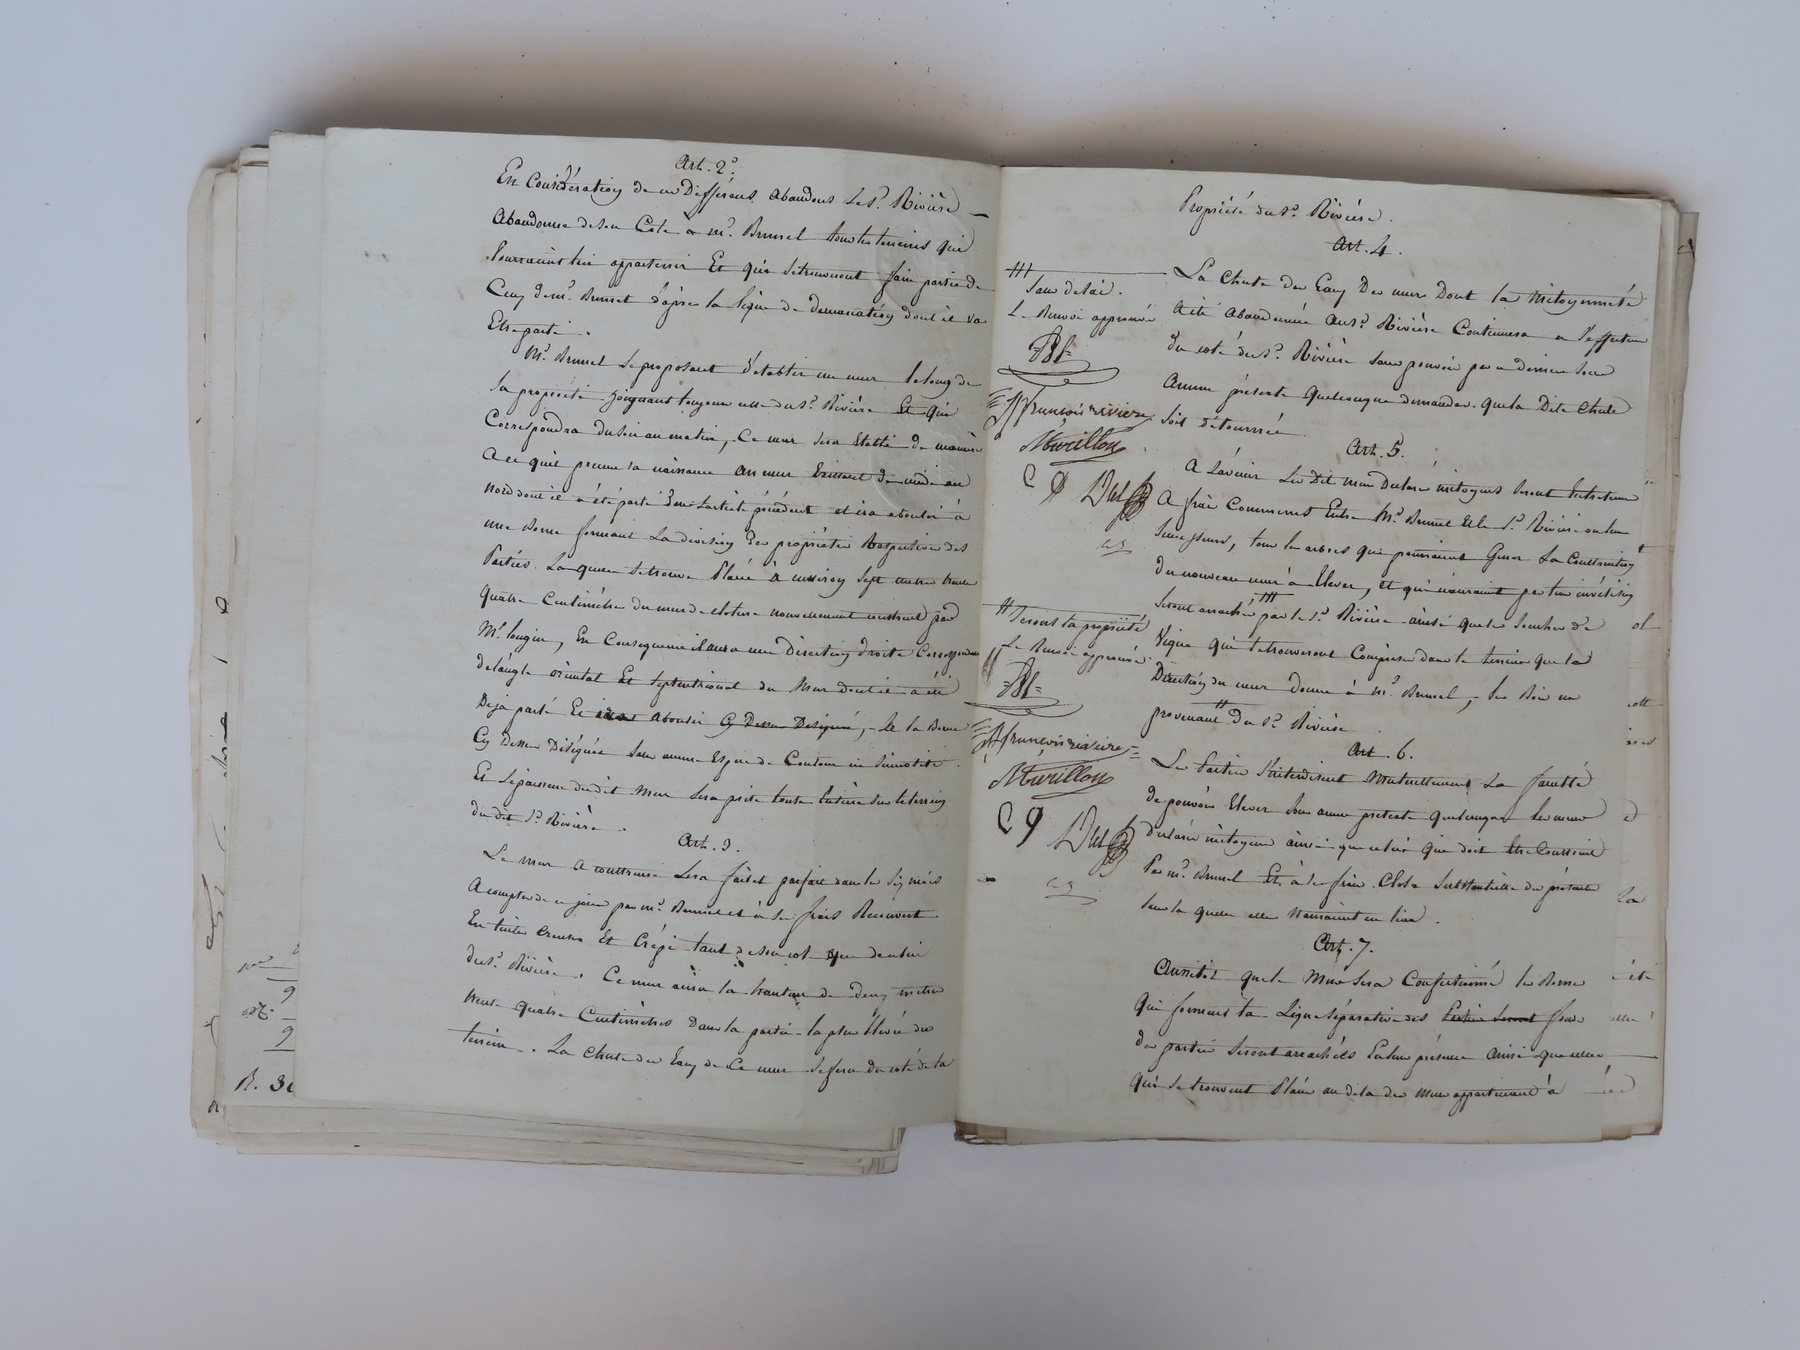 Art. 2e.
En Considération de ces Différens abandons le Sr. Rivière
abandonne de son Coté à Mr. Brunel tous les terreins qui
Pourraient lui appartenir Et qui se trouveront faire partie de
Ceux de Mr. Brunel d'après la ligne de démarcation dont il va
Etre parlé.
Mr. Brunel se proposant d'établir un mur le long de
sa propriété joignant toujours celle du Sr. Rivière Et qui
Correspondra du soir au matin, Ce mur sera établi de manière
a ce qu'il prenne sa naissance au mur Existant de midi au
nord dont il a été parlé dans l'article précédent et ira aboutir à
une Borne formant La division des propriétés Respectives des
Parties. La quelle se trouve Placée à environ Sept mètres trente
quatre Centimètres du mur de cloture nouvellement construit par
Mr. lougin, En Consequence il aura une Direction droite
de l'angle oriental Et septentrional du Mur dont il a été
Déja parlé Et aboutir Cy Dessus Désigné, - Et la Borne
Cy Dessus Désignée Sans aucune Espèce de Contour ni Sinuosité.
Et l'épaisseur du dit Mur sera prise toute Entière sur le terrein
du dit Sr. Rivière.
Art. 3.
Le mur a construire Sera fait et parfait dans le
a compter de ce jour par Mr. Brunel et à ses frais Recouvert
En tuiles creuses Et Crépi tant de son coté que de celui
du Sr. Rivière. Ce mur aura la hauteur de Deux mètres
trente quatre Centimètres Dans la partie la plus Elevée du
terrein. La chute des Eaux de Ce mur se fera du coté de la
Propriété du Sr. Rivière.
Art. 4.
La Chute des Eaux Des murs Dont la mitoyenneté
a été abandonnée au Sr. Rivière Continuera a s'effectuer
du coté du Sr. Rivière sans pouvoir par ce dernier sous
Aucun prétexte Quelconque demander que la Dite Chute
soit détournée.
Art. 5.
A L'avenir Les Dit murs Déclarés mitoyens seront Entretenus
A frais Communs Entre Mr. Brunel Et le Sr. Rivière ou leurs
Successeurs, tous les arbres qui pourraient Gener La Construction
du nouveau mur à Elever, et qui
seront arrachés par le Sr. Rivière ainsi que les Souches de
Vigne qui se trouveront Comprises dans le terrein que la
Direction du mur donne à Mr. Brunel, les Bois en
provenant du Sr. Rivière.
Art. 6.
Les Parties s'interdisent Mutuellement La faculté
de pouvoir Elever sous aucun pretexte quelconque les murs
Déclarés mitoyens ainsi que celui qui doit Etre Construit
Par Mr. Brunel Et à ses frais. Clause Substantielle des présentes
sans la quelle elles n'auraient eu lieu.
Art. 7.
Aussitôt que le Mur sera Confectionné les Bornes
Qui forment la Ligne séparative des fonds
des parties seront arrachées En leur présence ainsi que celles
Qui se trouvent Placées au dela des Murs appartenant à
Sans delai.
Le Renvoi approuvé
françois riviere
Murillon
Seront la propriété
Le Renvoi approuvé
françois riviere
Murillon